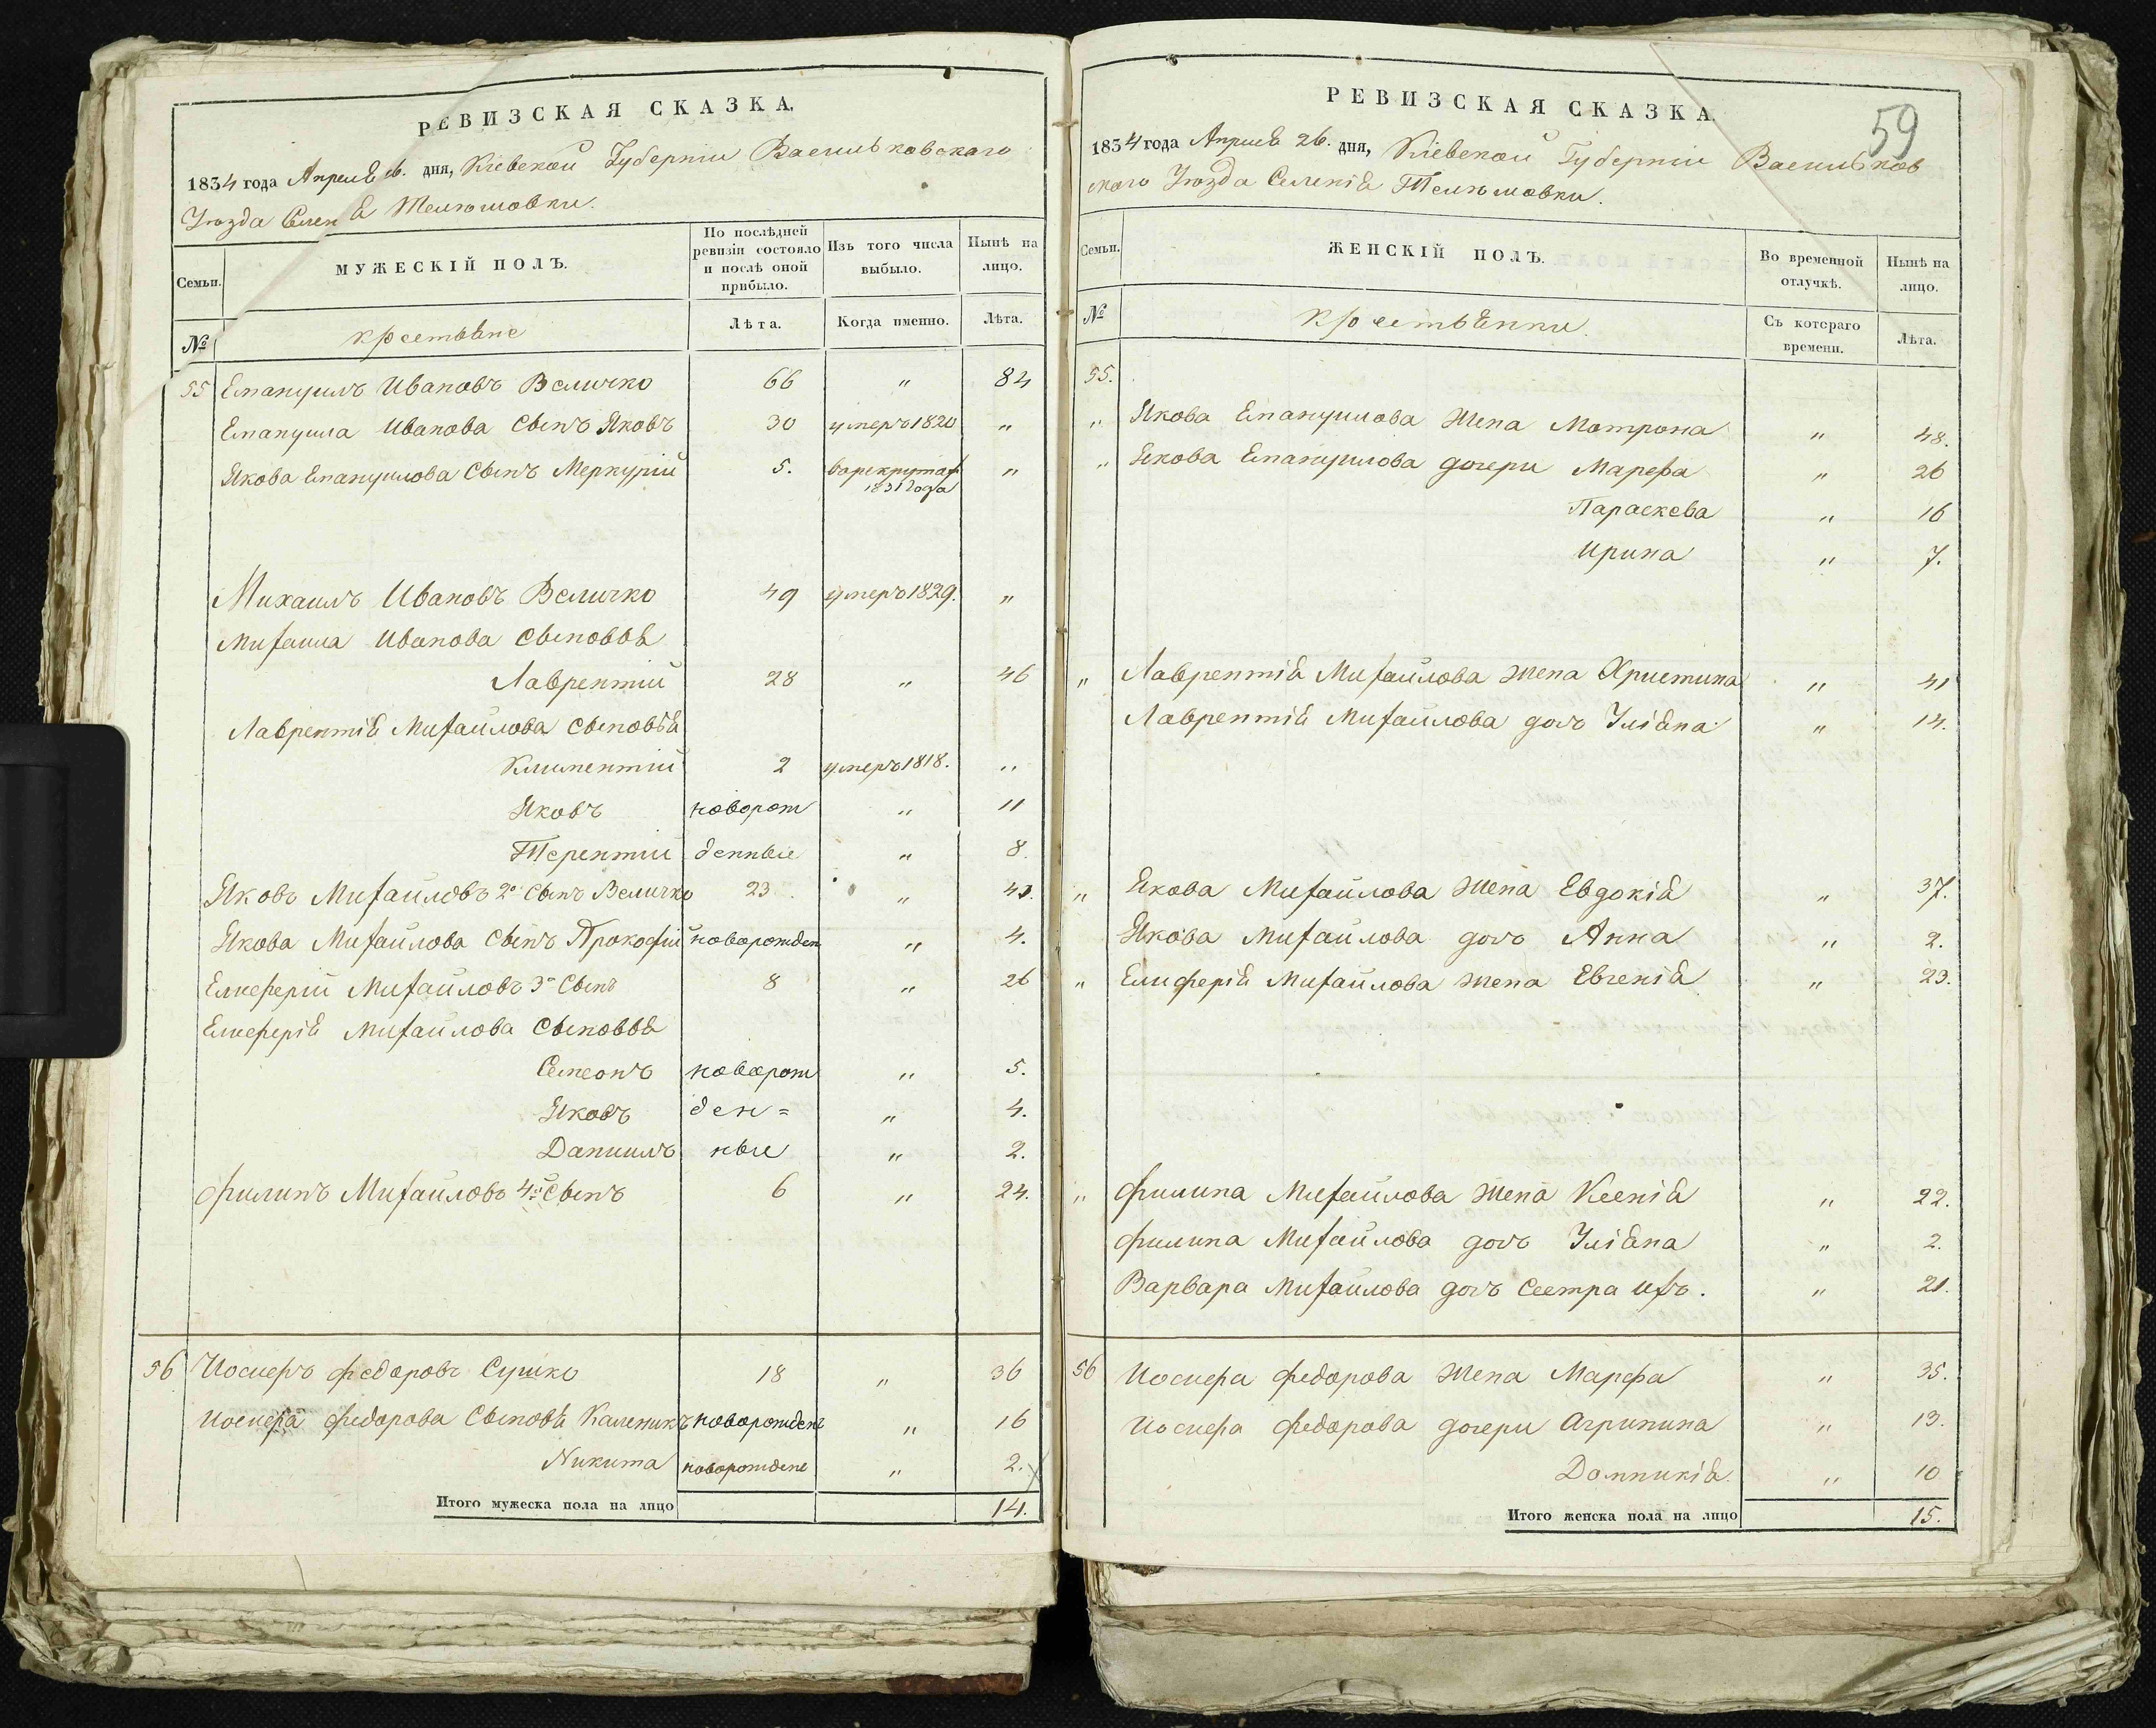 РЕВИЗСКАЯ СКАЗКА.
1834 года Апреля дня, Кіевской Губерніи Васильковскаго
Уѣзда Телѣшовки.
Семьи.
МУЖЕСКІЙ ПОЛЪ.
По послѣдней ревизіи состояло и послѣ оной прибыло.
Изъ того числа выбыло.
Нынѣ на лицо.
№
крестьяне
Лѣта.
Когда именно.
Лѣта.
55 Емануилъ Ивановъ Величко 66 " 84
Емануила Иванова Сынъ Яковъ 30 умеръ 1820 "
Якова Емануилова Сынъ Меркурій 5. варекрутах "
1831 года
Михаилъ Ивановъ Величко 49 умеръ 1829. "
Михаила Иванова Сыновья
Лаврентій 28 " 46
Лаврентія Михайлова Сыновья
Климентій 2 умеръ 1818. "
Яковъ новорож " 11
Терентій денные " 8.
Яковъ Михайловъ 2й Сынъ Величко 23 " 41.
Якова Михайлова Сынъ Прокофій новорожден " 4.
Елеферій Михайловъ 3й Сынъ 8 " 26
Елеферія Михайлова Сыновья
Семеонъ новорож " 5.
Яковъ ден= " 4.
Даниилъ ные " 2.
Филипъ Михайловъ 4й Сынъ 6 " 24.
56 Иосифъ Федоровъ Сушко 18 " 36
Иосифа Федорова Сыновья Каленикъ новорожден " 16
Никита новорождене " 2.
Итого мужеска пола на лицо 14.
РЕВИЗСКАЯ СКАЗКА.
59
1834 года Апреля 26. дня, Кіевской Губерніи Васильков
скаго Уѣзда Селенія Телѣшовки.
Семьи.
ЖЕНСКІЙ ПОЛЪ.
Во временной отлучкѣ.
Нынѣ на лицо.
№
крестьянки.
Съ котораго времени.
Лѣта.
55.
" Якова Емануилова жена Мотрона " 48.
" Якова Емануилова дочери Марфа " 26
Параскева " 16
Ирина " 7.
" Лаврентія Михайлова жена Христина " 41
Лаврентія Михайлова дочь Уліяна " 14.
" Якова Михайлова жена Евдокія " 37.
Якова Михайлова дочь Анна " 2.
" Елиферія Михайлова жена Евгенія " 23.
" Филипа Михайлова жена Ксенія " 22.
Филипа Михайлова дочь Уліяна " 2.
Варвара Михайлова дочь Сестра ихъ. " 21.
56 Иосифа Федорова жена Марфа " 35.
Иосифа Федорова дочери Агрипина " 13.
Домникія. " 10
Итого женска пола на лицо 15.